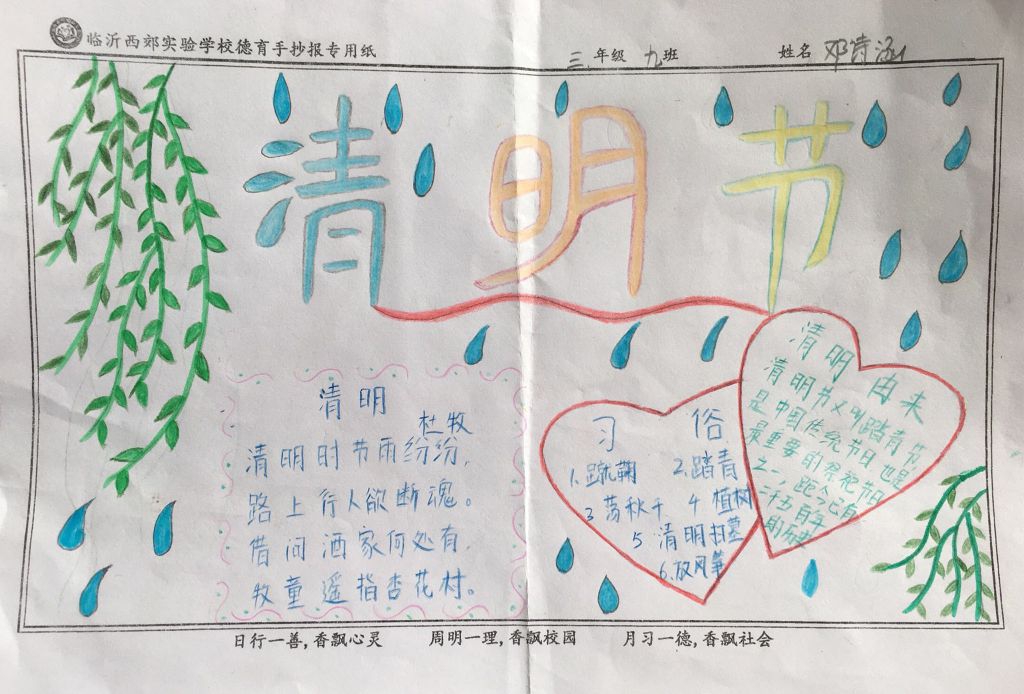 临沂西郊实验学校德育手抄报专用纸
三 年级 九 班 姓名 邓诗涵
清明节
清明
杜牧
清明时节雨纷纷,
路上行人欲断魂。
借问酒家何处有,
牧童遥指杏花村。
习俗
1.蹴鞠 2.踏青
3荡秋千 4植树
5清明扫墓
6.放风筝
清明由来
清明节又叫踏青节,
是中国传统节日也是
最重要的祭祀节日
之一,距今已有
二千五百年
的历史
日行一善,香飘心灵 周明一理,香飘校园 月习一德,香飘社会